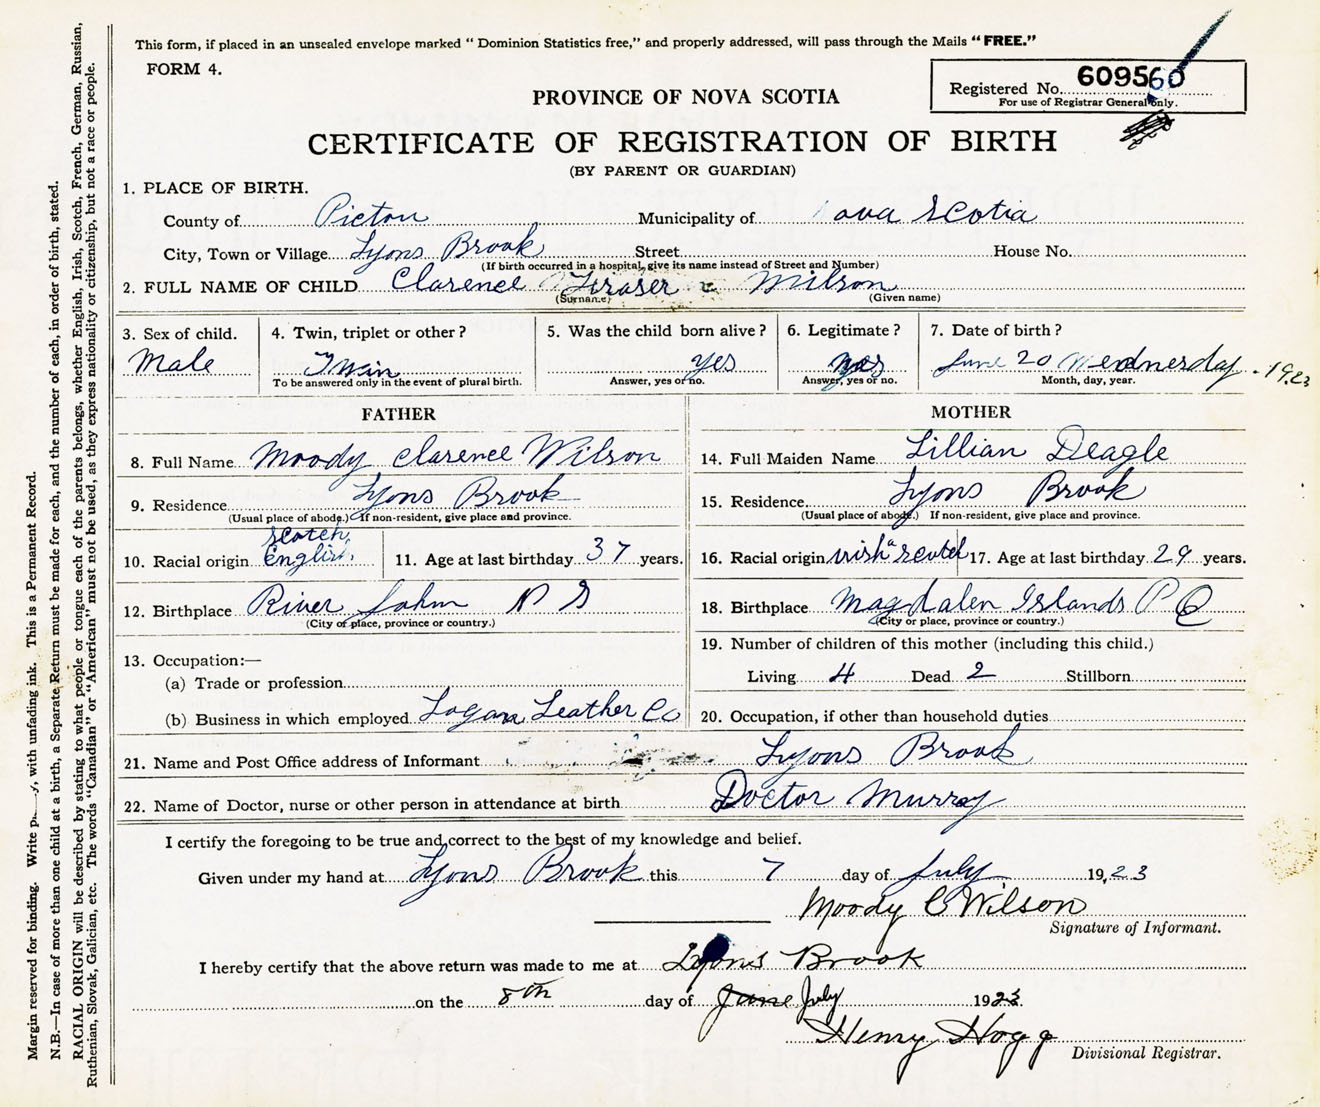 This form, if placed in an unsealed envelope marked “Dominion Statistics free,” and properly addressed, will pass through the Mails “FREE.”
FORM 4.
Registered No. 609560
For use of Registrar General only.
PROVINCE OF NOVA SCOTIA
CERTIFICATE OF REGISTRATION OF BIRTH
(BY PARENT OR GUARDIAN)
1. PLACE OF BIRTH.
County of Picton Municipality of ova Scotia
City, Town or Village Lyons Brook Street House No.
(If birth occurred in a hospital, give its name instead of Street and Number)
2. FULL NAME OF CHILD Clarence Fraser Wilson
(Surname) (Given name)
3. Sex of child. 4. Twin, triplet or other? 5. Was the child born alive? 6. Legitimate? 7. Date of birth?
Male Twin yes yes June 20 Wednesday 1923
To be answered only in the event of plural birth. Answer, yes or no. Answer, yes or no. Month, day, year.
FATHER
8. Full Name Moody Clarence Wilson
9. Residence Lyons Brook
(Usual place of abode.) If non-resident, give place and province.
Scotch,
10. Racial origin English 11. Age at last birthday 37 years.
12. Birthplace River John N S
(City or place, province or country.)
13. Occupation:—
(a) Trade or profession
(b) Business in which employed Logan Leather Co
MOTHER
14. Full Maiden Name Lillian Deagle
15. Residence Lyons Brook
(Usual place of abode.) If non-resident, give place and province.
16. Racial origin irish scotch 17. Age at last birthday 29 years.
18. Birthplace Magdalen Islands P Q
(City or place, province or country.)
19. Number of children of this mother (including this child.)
Living 4 Dead 2 Stillborn
20. Occupation, if other than household duties
21. Name and Post Office address of Informant Lyons Brook
22. Name of Doctor, nurse or other person in attendance at birth Doctor Murray
I certify the foregoing to be true and correct to the best of my knowledge and belief.
Given under my hand at Lyons Brook this 7 day of July 1923
Moody C Wilson
Signature of Informant.
I hereby certify that the above return was made to me at Lyons Brook
on the 8th day of June July 1923
Henry Hogg
Divisional Registrar.
Margin reserved for binding. Write with unfading ink. This is a Permanent Record.
N.B.—In case of more than one child at a birth, a Separate Return must be made for each, and the number of each, in order of birth, stated.
RACIAL ORIGIN will be described by stating to what people or tongue each of the parents belongs, whether English, Irish, Scotch, French, German, Russian,
Ruthenian, Slovak, Galician, etc. The words “Canadian” or “American” must not be used, as they express nationality or citizenship, but not a race or people.